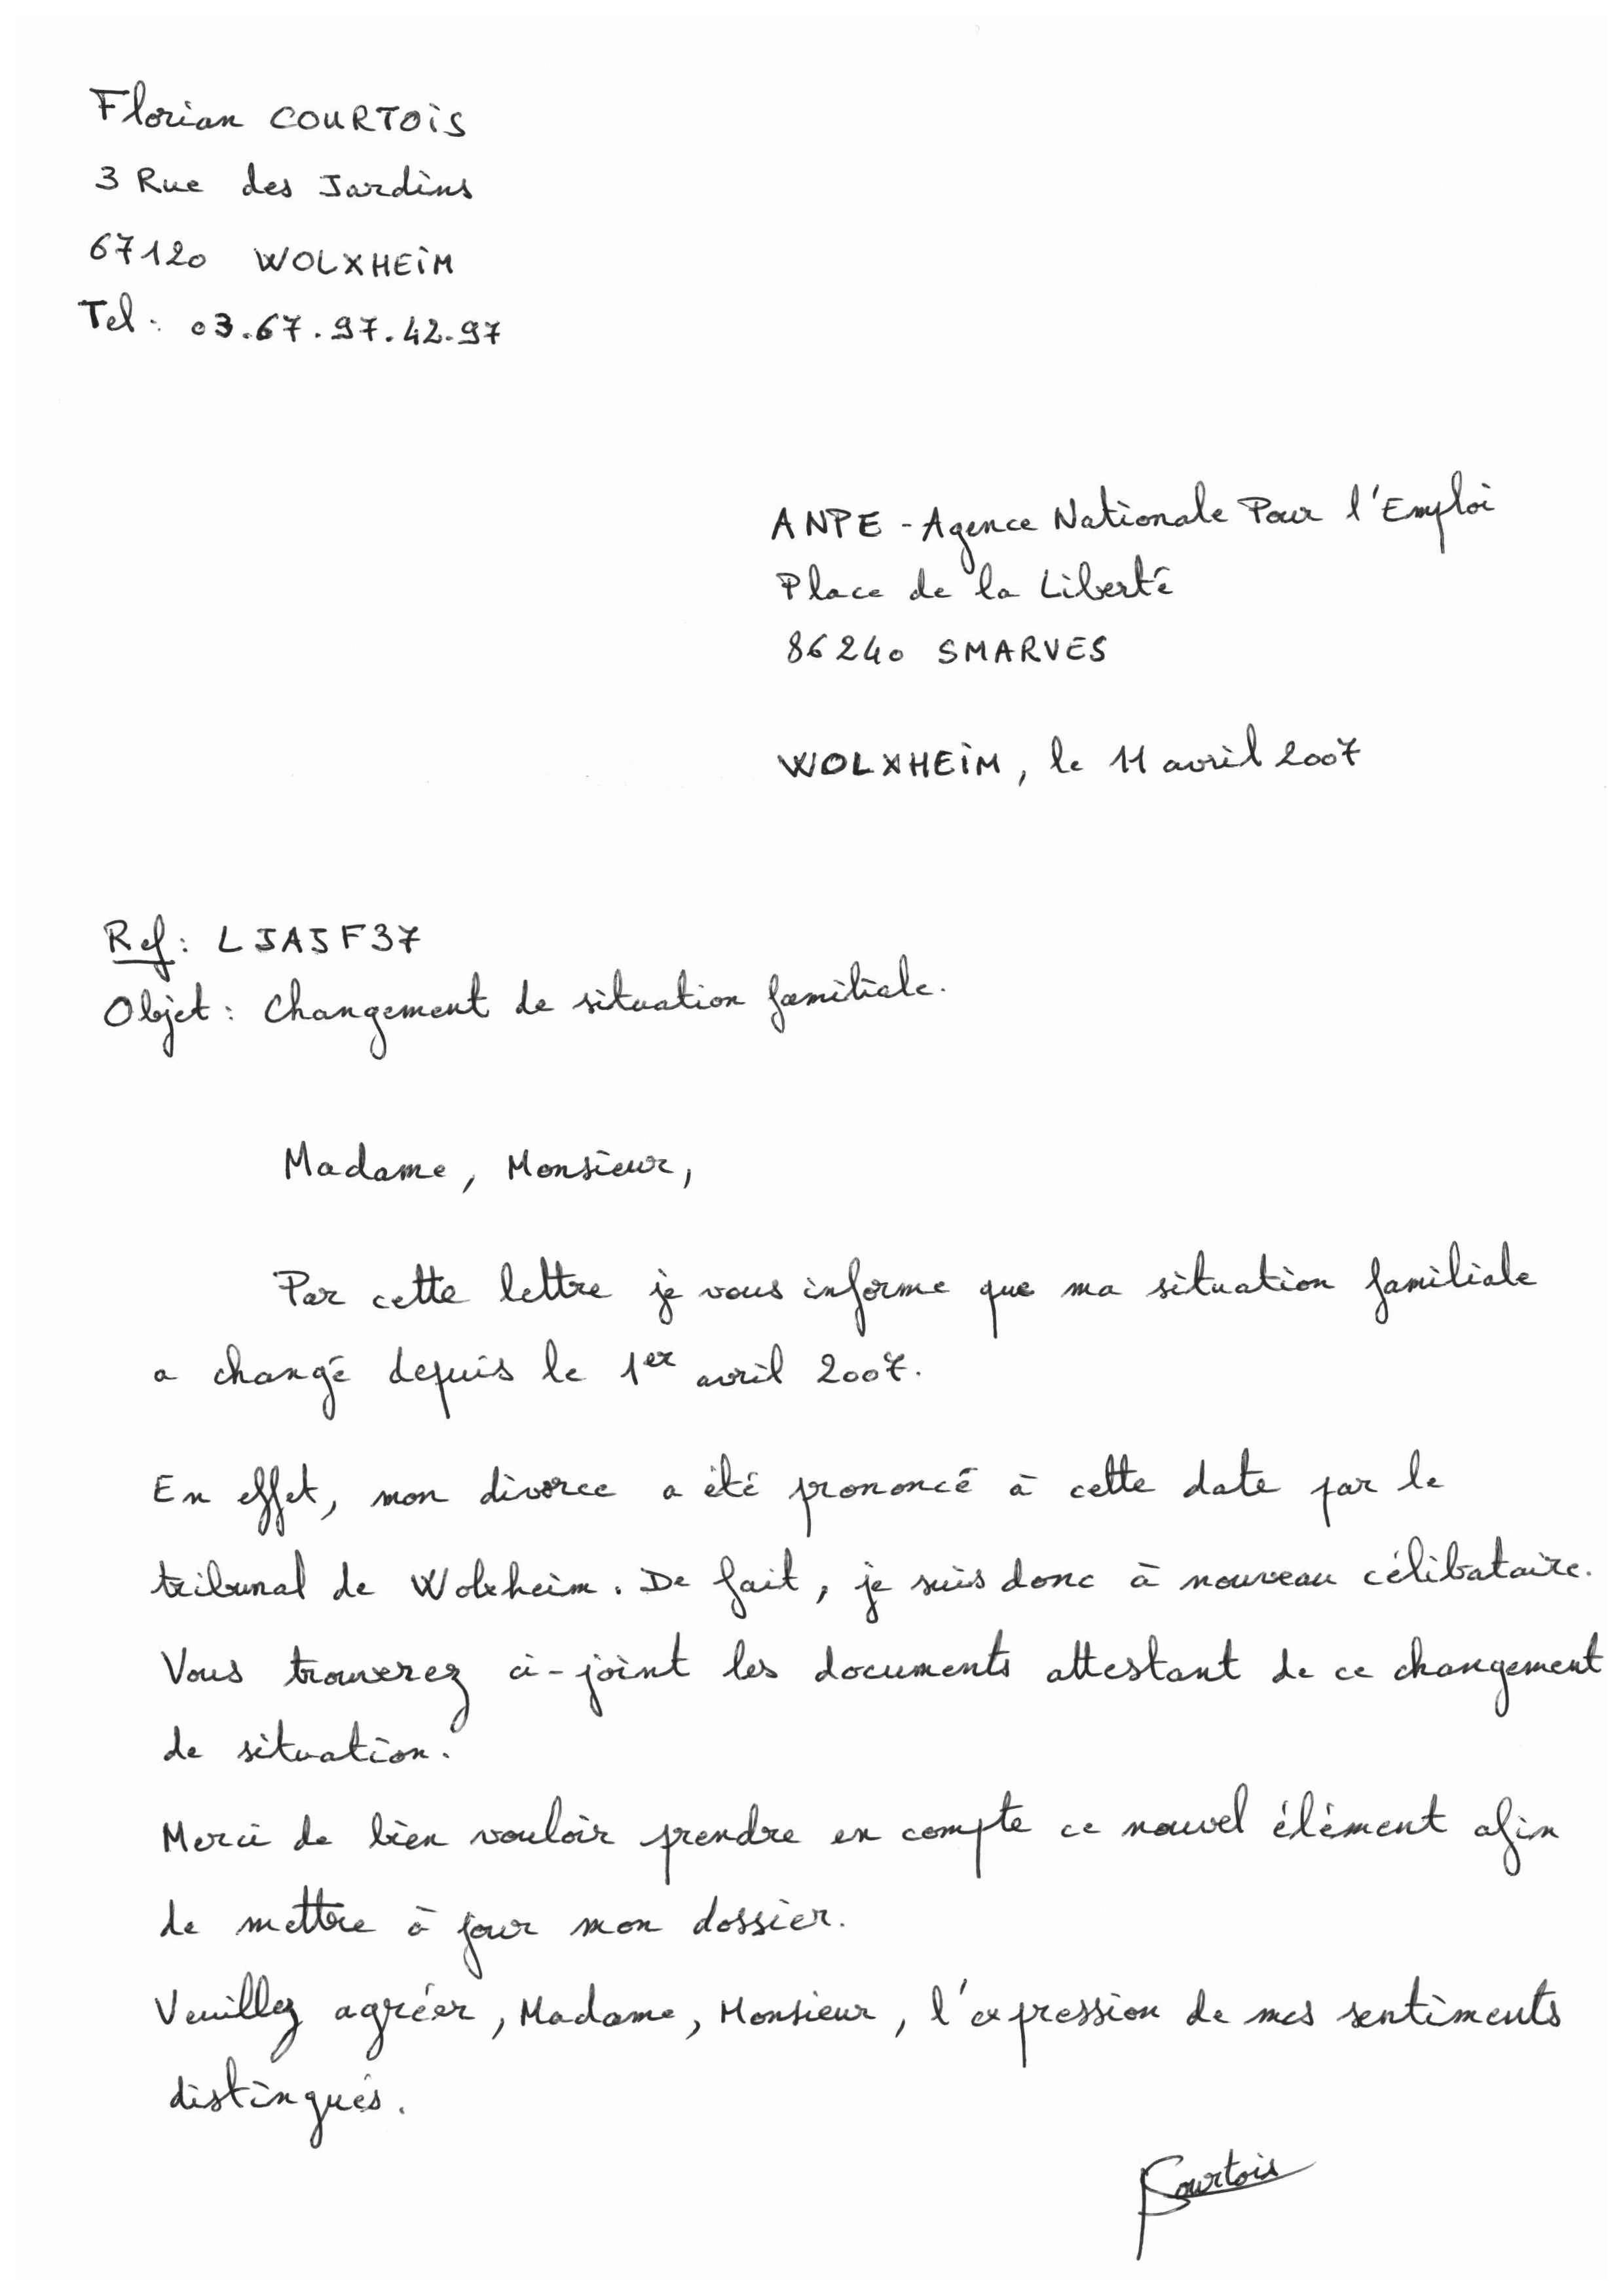 Florian COURTOIS
3 Rue des Jardins
67120 WOLXHEIM
Tel : 03.67.97.42.97
ANPE - Agence Nationale Pour l'Emploi
Place de la Liberté
86240 SMARVES
WOLXHEIM, le 11 avril 2007
Ref : LJAJF37
Objet : Changement de situation familiale.
Madame, Monsieur,
Par cette lettre je vous informe que ma situation familiale
a changé depuis le 1er avril 2007.
En effet, mon divorce a été prononcé à cette date par le
tribunal de Wolxheim. De fait, je suis donc à nouveau célibataire.
Vous trouverez ci-joint les documents attestant de ce changement
de situation.
Merci de bien vouloir prendre en compte ce nouvel élément afin
de mettre à jour mon dossier.
Veuillez agréer, Madame, Monsieur, l'expression de mes sentiments
distingués.
FCourtois